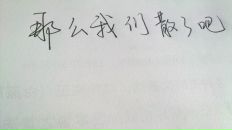 那么我们散了吧